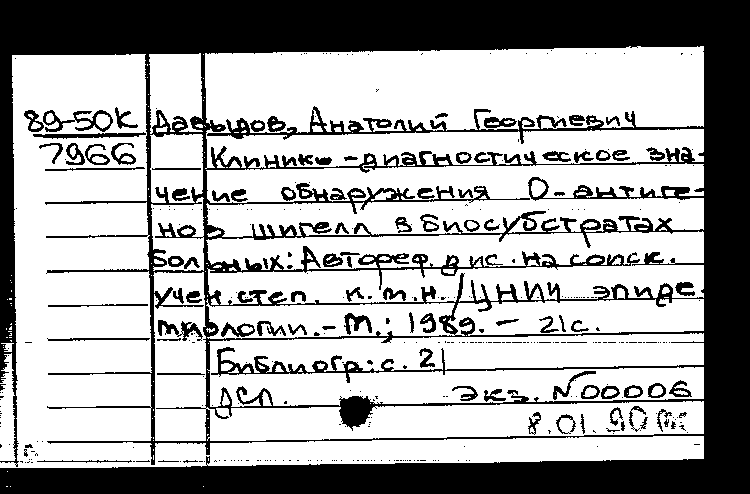 89-50К Давыдов, Анатолий Георгиевич
7966 Клинико-диагностическое зна-
чение обнаружения О-антиге-
нов шигелл в биосубстратах
больных: Автореф. дис. на соиск.
учен. степ. к.м.н. / ЦНИИ эпиде-
миологии. - М.; 1989. - 21с.
Библиогр: с. 21
ДСП. Экз. №00006
8.01.90